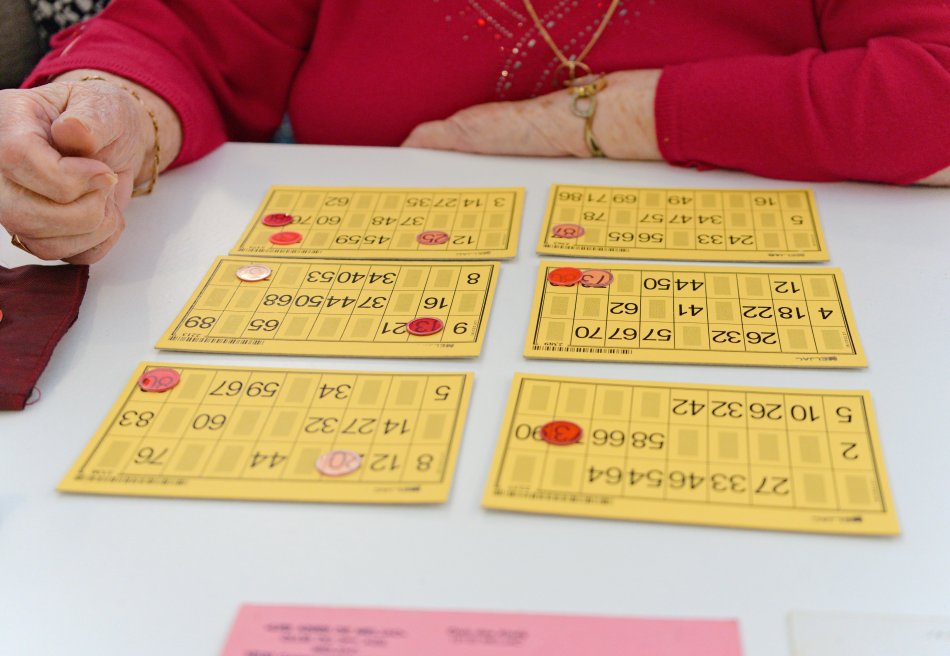 27 33 46 54 64
2 58 66 90
5 10 26 32 42
8 12 20 44 76
14 27 32 60 83
5 34 59 67
26 32 57 67 70
4 18 22 41 62
12 44 50 73
9 13 21 65 89
16 37 44 50 68
8 34 40 53
24 33 56 65 87
5 34 47 57 78
16 49 69 71 86
12 25 45 59
37 48 60
3 14 27 35 62